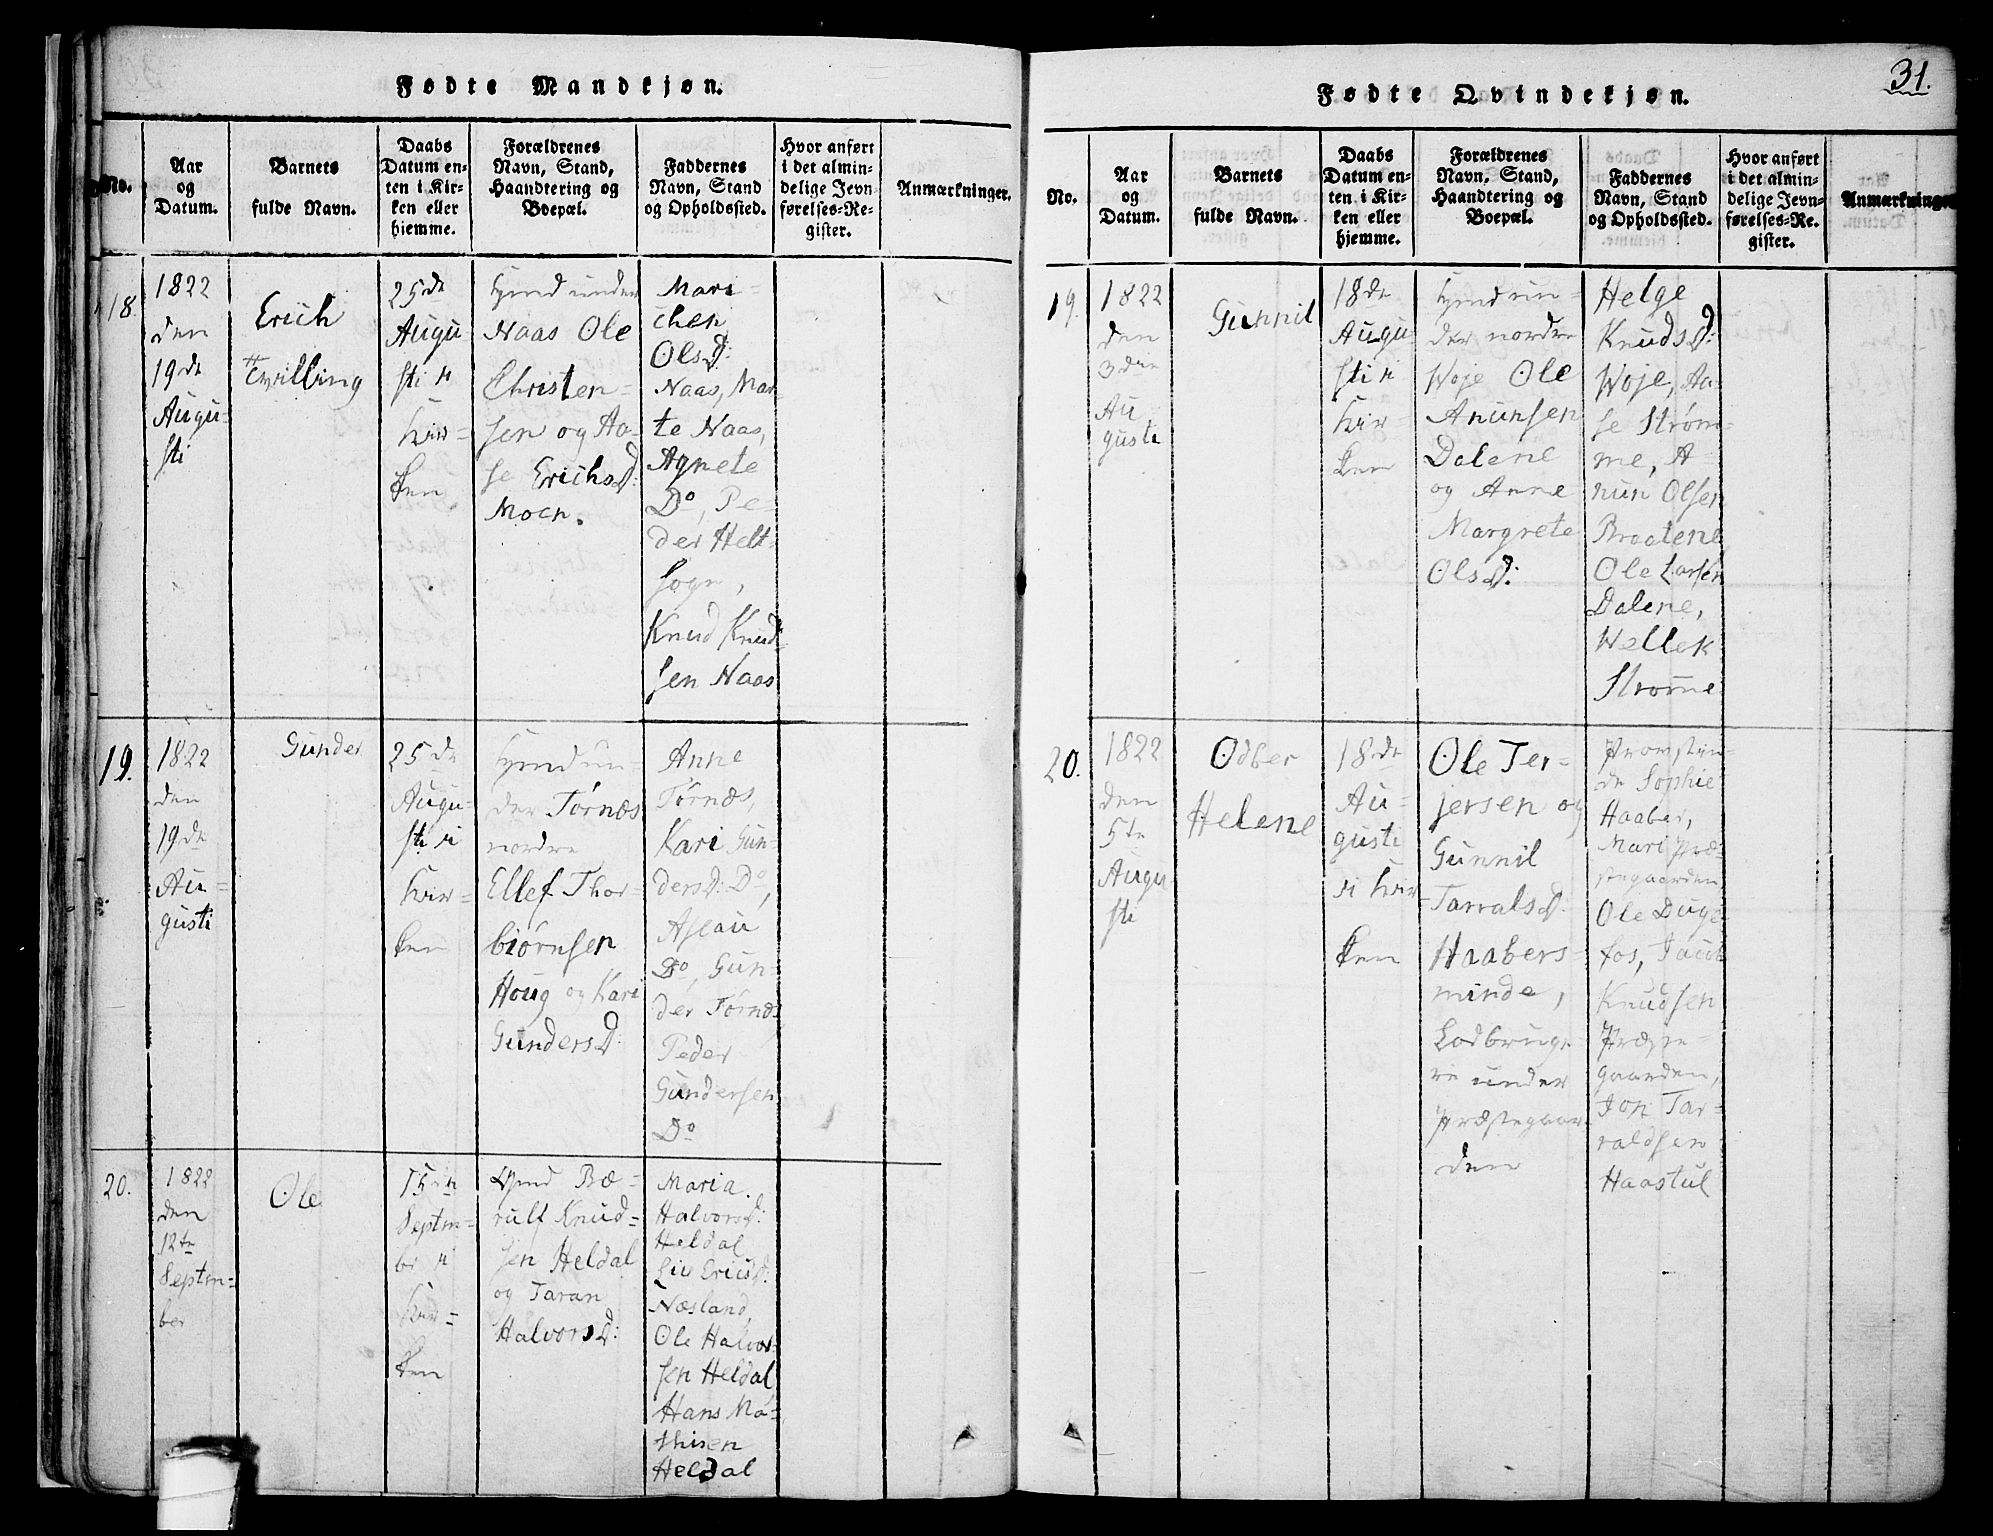 Fødte Mandkjøn.
No.
Aar
og
Datum.
Barnets
fulde Navn.
Daabs
Datum en-
ten i Kir-
ken eller
hjemme.
Forældrenes
Navn, Stand,
Haandtering og
Boepæl.
Faddernes
Navn, Stand
og Opholdssted.
Hvor anført
i det almin-
delige Jevn-
førelses-Re-
gister.
Anmærkninger.
18.
1822
den
19de
Augu-
sti
Erich
Tvilling
25de
Augu
sti i
Kir-
ken
under
Naas Ole
Christen-
sen og Aa-
se Erichsd:
Moen.
Mari-
chen
Olsd:
Naas, Mar
te Naas,
Agnete
Do, Pe-
der Helt-
sogn,
Knud Knud
sen Naas
19.
1822
den
19de
Au-
gusti
Gunder
25de
Augu-
sti i
Kir-
ken
un-
der Tørnæs
nordre
Ellef Thor-
biørnsen
Houg og Kari
Gundersd:
Anne
Tørnæs,
Kari Gun-
dersd: Do,
Aslau
Do, Gun-
der Tørnæs
Peder
Gundersen
Do
20.
1822
den
12te
Septem-
ber
Ole
15de
Septem-
br i
Kir-
ken
Bæ-
rulf Knud-
sen Heldal
og Taran
Halvorsd:
Maria
Halvorsd:
Heldal
Liv Ericsd:
Næsland,
Ole Halvor-
sen Heldal
Hans Ma-
thisen
Heldal
31.
Fødte Qvindekjøn.
No.
Aar
og
Datum.
Barnets
fulde Navn.
Daabs
Datum en-
ten i Kir-
ken eller
hjemme.
Forældrenes
Navn, Stand,
Haandtering og
Boepæl.
Faddernes
Navn, Stand
og Opholdssted.
Hvor anført
i det almin-
delige Jevn-
førelses-Re-
gister.
Anmærkninger
19.
1822
den
3die
Au-
gusti
Gunnil
18de
Augu-
sti i
Kir-
ken
un-
der nordre
Woje Ole
Anunsen
Dalene
og Anne
Margrete
Olsd:
Helge
Knudsd:
Woje, Aa-
se Strøm-
me, A-
nun Olsen
Braatene
Ole Larsen
Dalene,
Wellek
Strøme
20.
1822
den
5te
Augu
sti
Odber
Helene
18de
Au-
gusti
i Kir-
ken
Ole Ter-
jersen og
Gunnil
Tarralsd.
Haabers-
minde,
Lodbruge-
re under
Præstegaar-
den
Provstin-
de Sophie
Haaber,
Mari Præ-
stegaarden,
Ole Duge-
fos, Jacob
Knudsen
Præste-
gaarden,
Jon Tar-
raldsen
Haastul